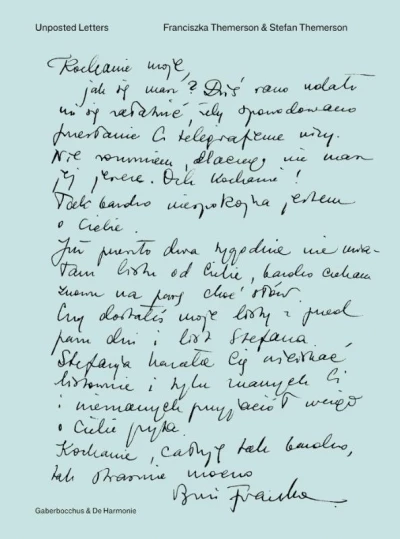 Unposted Letters Franciszka Themerson & Stefan Themerson
Kochanie moje,
jak się masz? Dziś rano udało
mi się załatwić, żeby spowodowano
przesłanie Ci telegrafem wizy.
Nie rozumiem, dlaczego nie masz
jej jeszcze. Och Kochanie!
Tak bardzo niespokojna jestem
o Ciebie.
Już prawie dwa tygodnie nie mia-
łam listu od Ciebie, bardzo czekam
znowu na parę choć słów.
Czy dostałeś moje listy z przed
paru dni i list Stefana.
Stefanja kazała Cię uściskać
listownie i tylu znanych Ci
i nieznanych przyjaciół wciąż
o Ciebie pyta.
Kochanie, całuję tak bardzo,
tak strasznie mocno
Franka.
Gaberbocchus & De Harmonie